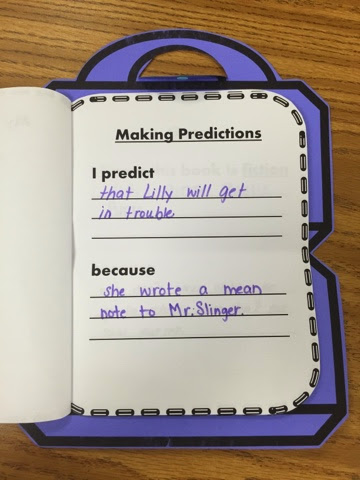 Making Predictions
I predict
that Lilly will get
in trouble
because
she wrote a mean
note to Mr. Slinger.